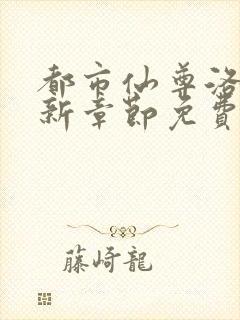 都市仙尊洛
新章節免費
藤崎龍